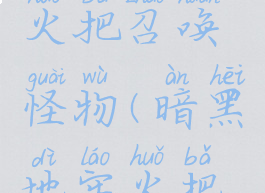 火把召唤
guài wù àn hēi
怪物(暗黑
dì láo huǒ bǎ
地牢火把